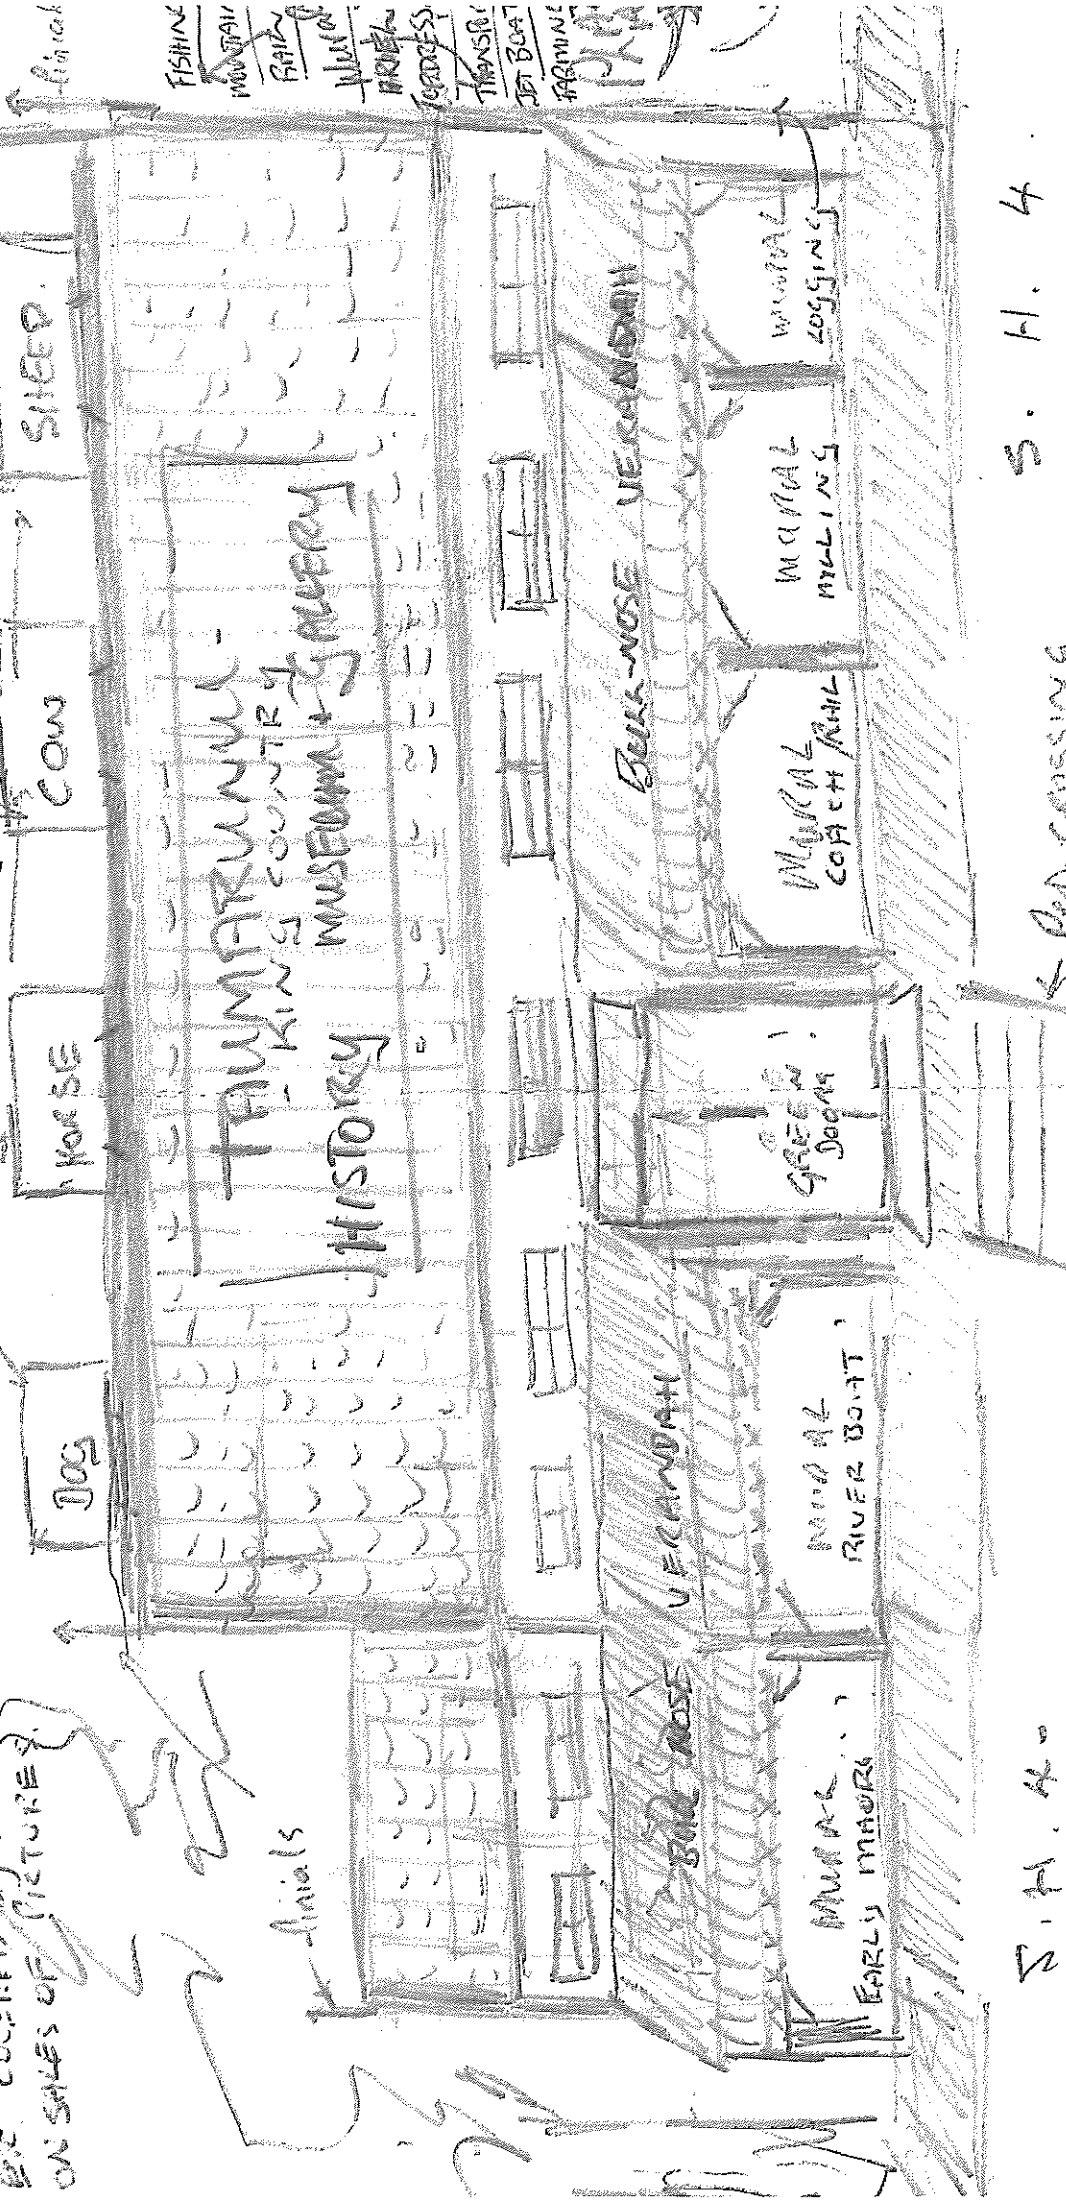 ON SALES OF PICTURES?
finials
DOG
HORSE
COW
SHEED.
finial
FISHING
MOUNTAIN
RAIN
JET BOAT
FARMING
TAUMARUNUI -
- KING COUNTRY
HISTORY MUSEUM + GALLERY
BULL NOSE VERANDAH
BULL-NOSE VERANDAH
MURAL
EARLY MAORI
MURAL
RIVER BOAT
GREEN
DOORS
MURAL
COACH / RAIL
MURAL
MILLING
MURAL
LOGGING
S. H. 4.
← PED. CROSSING
S. H. 4.